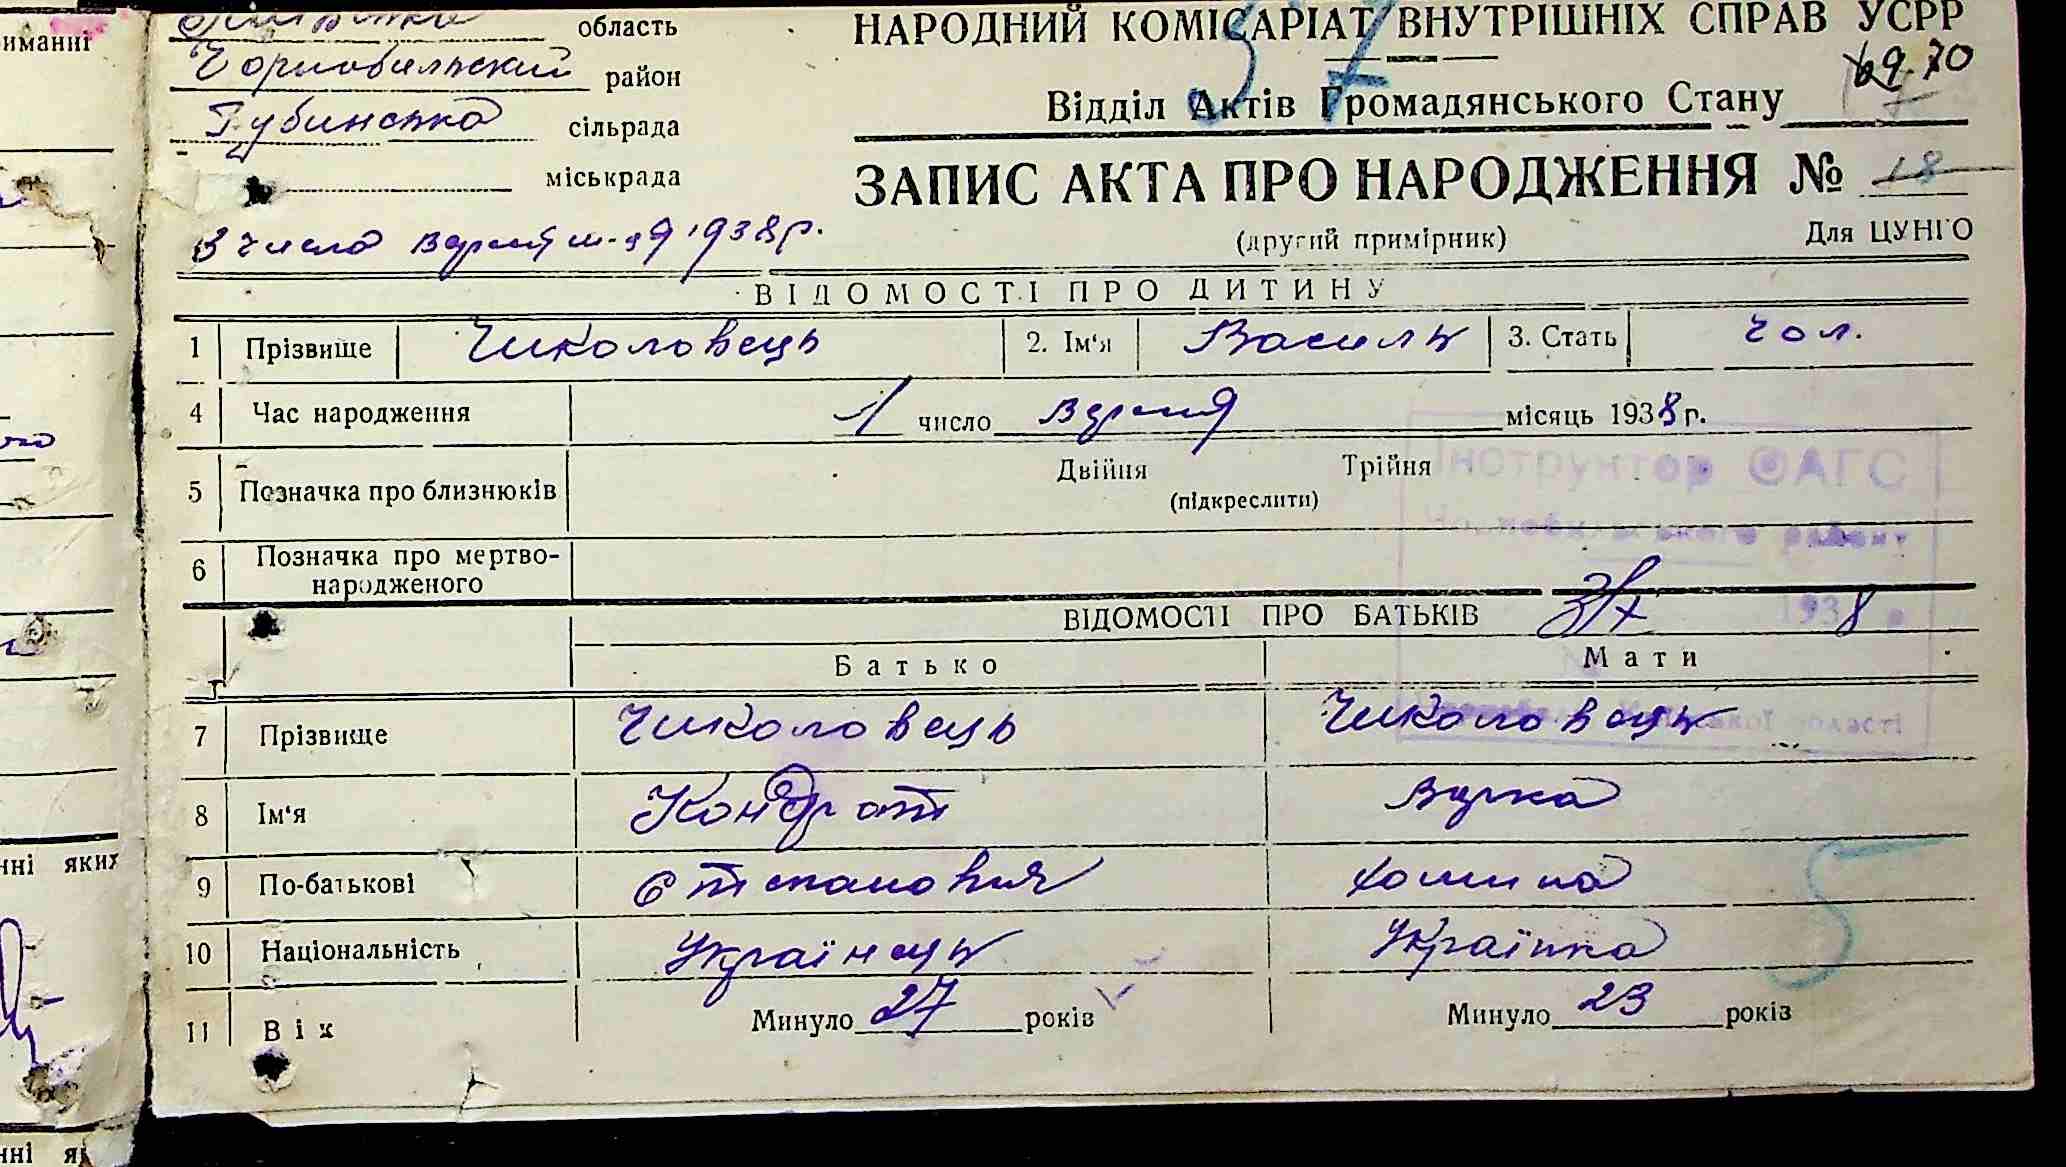 область
Чорнобильский район
Губинська сільрада
міськрада
3 число вересня м-ця 1938 р.
НАРОДНИЙ КОМІСАРІАТ ВНУТРІШНІХ СПРАВ УСРР
57
69-70
Відділ Актів Громадянського Стану
ЗАПИС АКТА ПРО НАРОДЖЕННЯ № 18
(другий примірник)
Для ЦУНГО
ВІДОМОСТІ ПРО ДИТИНУ
1 Прізвище Чиколовець 2. Ім'я Василь 3. Стать чол.
4 Час народження 1 число вересня місяць 1938 г.
5 Позначка про близнюків Двійня Трійня
(підкреслити)
Інструктор ОАГС
Чорнобильського району
6 Позначка про мертво-
народженого
ВІДОМОСТІ ПРО БАТЬКІВ
3/X 1938 р
Батько Мати
7 Прізвище Чиколовець Чиколовець
області
8 Ім'я Кондрат Вірка
9 По-батькові Степанович Хомина
10 Національність Українець Українка
5
11 Вік Минуло 27 років Минуло 23 років
иманні
нні яких
нні як